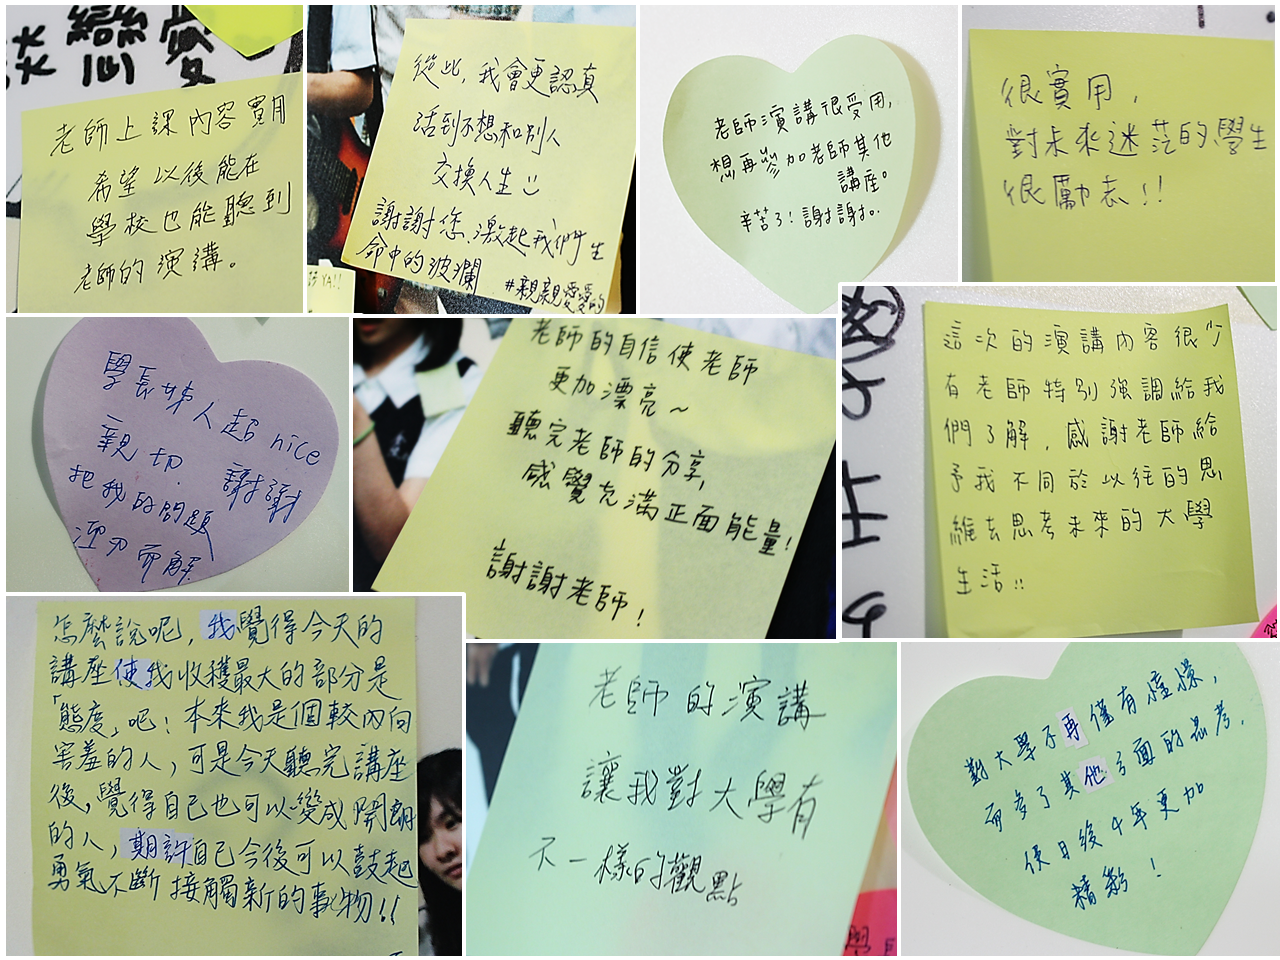 戀愛
老師上課內容實用
希望以後能在
學校也能聽到
老師的演講。
從此,我會更認真
活到不想和別人
交換人生
謝謝您,激起我們生
命中的波瀾
#親親愛愛的
YA!!
老師演講很受用,
想再參加老師其他
講座。
辛苦了!謝謝。
很實用,
對未來迷茫的學生
很勵志!!
學長姊人超nice
親切. 謝謝
把我的問題
迎刃而解
老師的自信使老師
更加漂亮~
聽完老師的分享,
感覺充滿正面能量!
謝謝老師!
這次的演講內容很少
有老師特別強調給我
們了解,感謝老師給
予我不同於以往的思
維去思考未來的大學
生活!!
怎麼說呢,我覺得今天的
講座使我收穫最大的部分是
「態度」吧!本來我是個較內向
害羞的人,可是今天聽完講座
後,覺得自己也可以變成開朗
的人,期許自己今後可以鼓起
勇氣不斷接觸新的事物!!
老師的演講
讓我對大學有
不一樣的觀點
對大學不再僅有憧憬,
而多了其他方面的思考,
使日後4年更加
精彩!